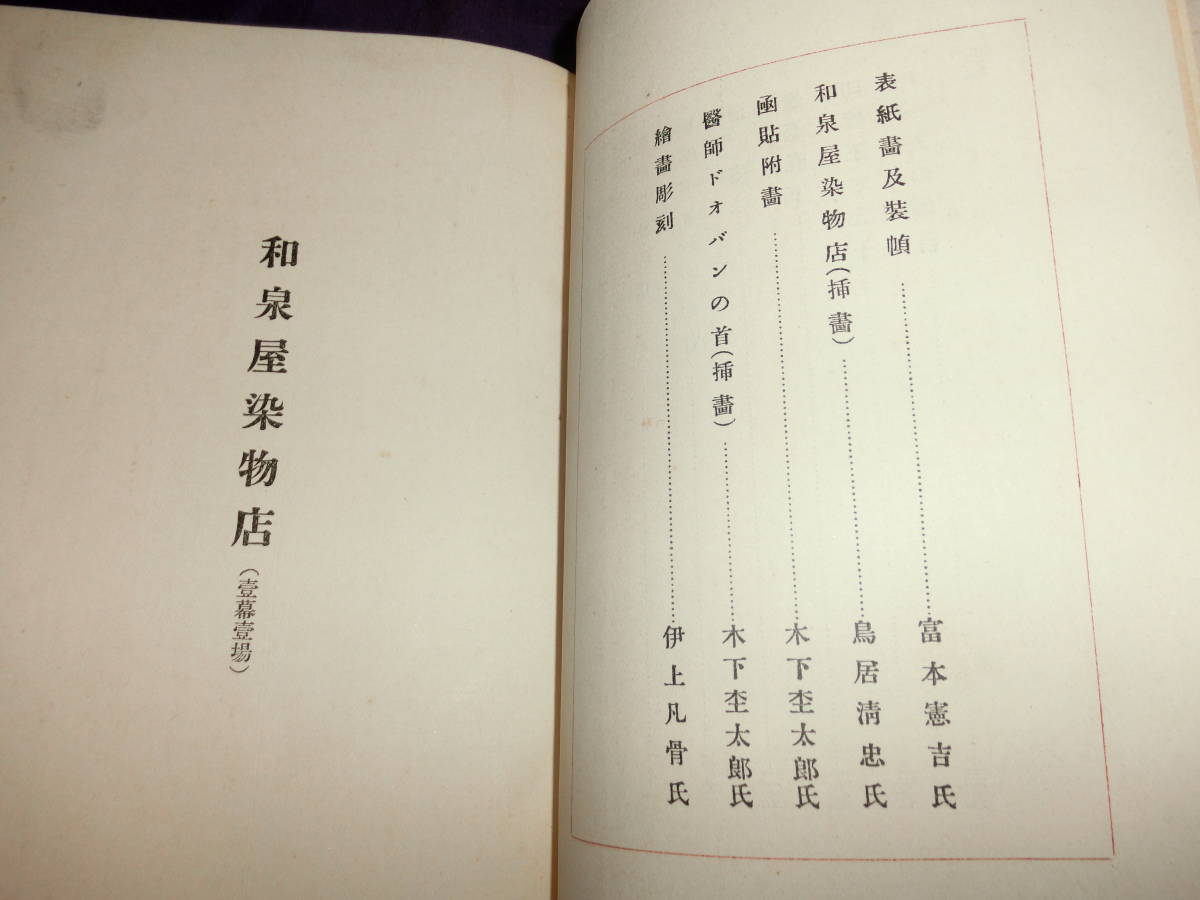 表紙畫及裝幀……富本憲吉氏
和泉屋染物店(挿畫)……鳥居淸忠氏
凾貼附畫……木下杢太郎氏
醫師ドオバンの首(挿畫)……木下杢太郎氏
繪畫彫刻……伊上凡骨氏
和泉屋染物店
(壹幕壹場)